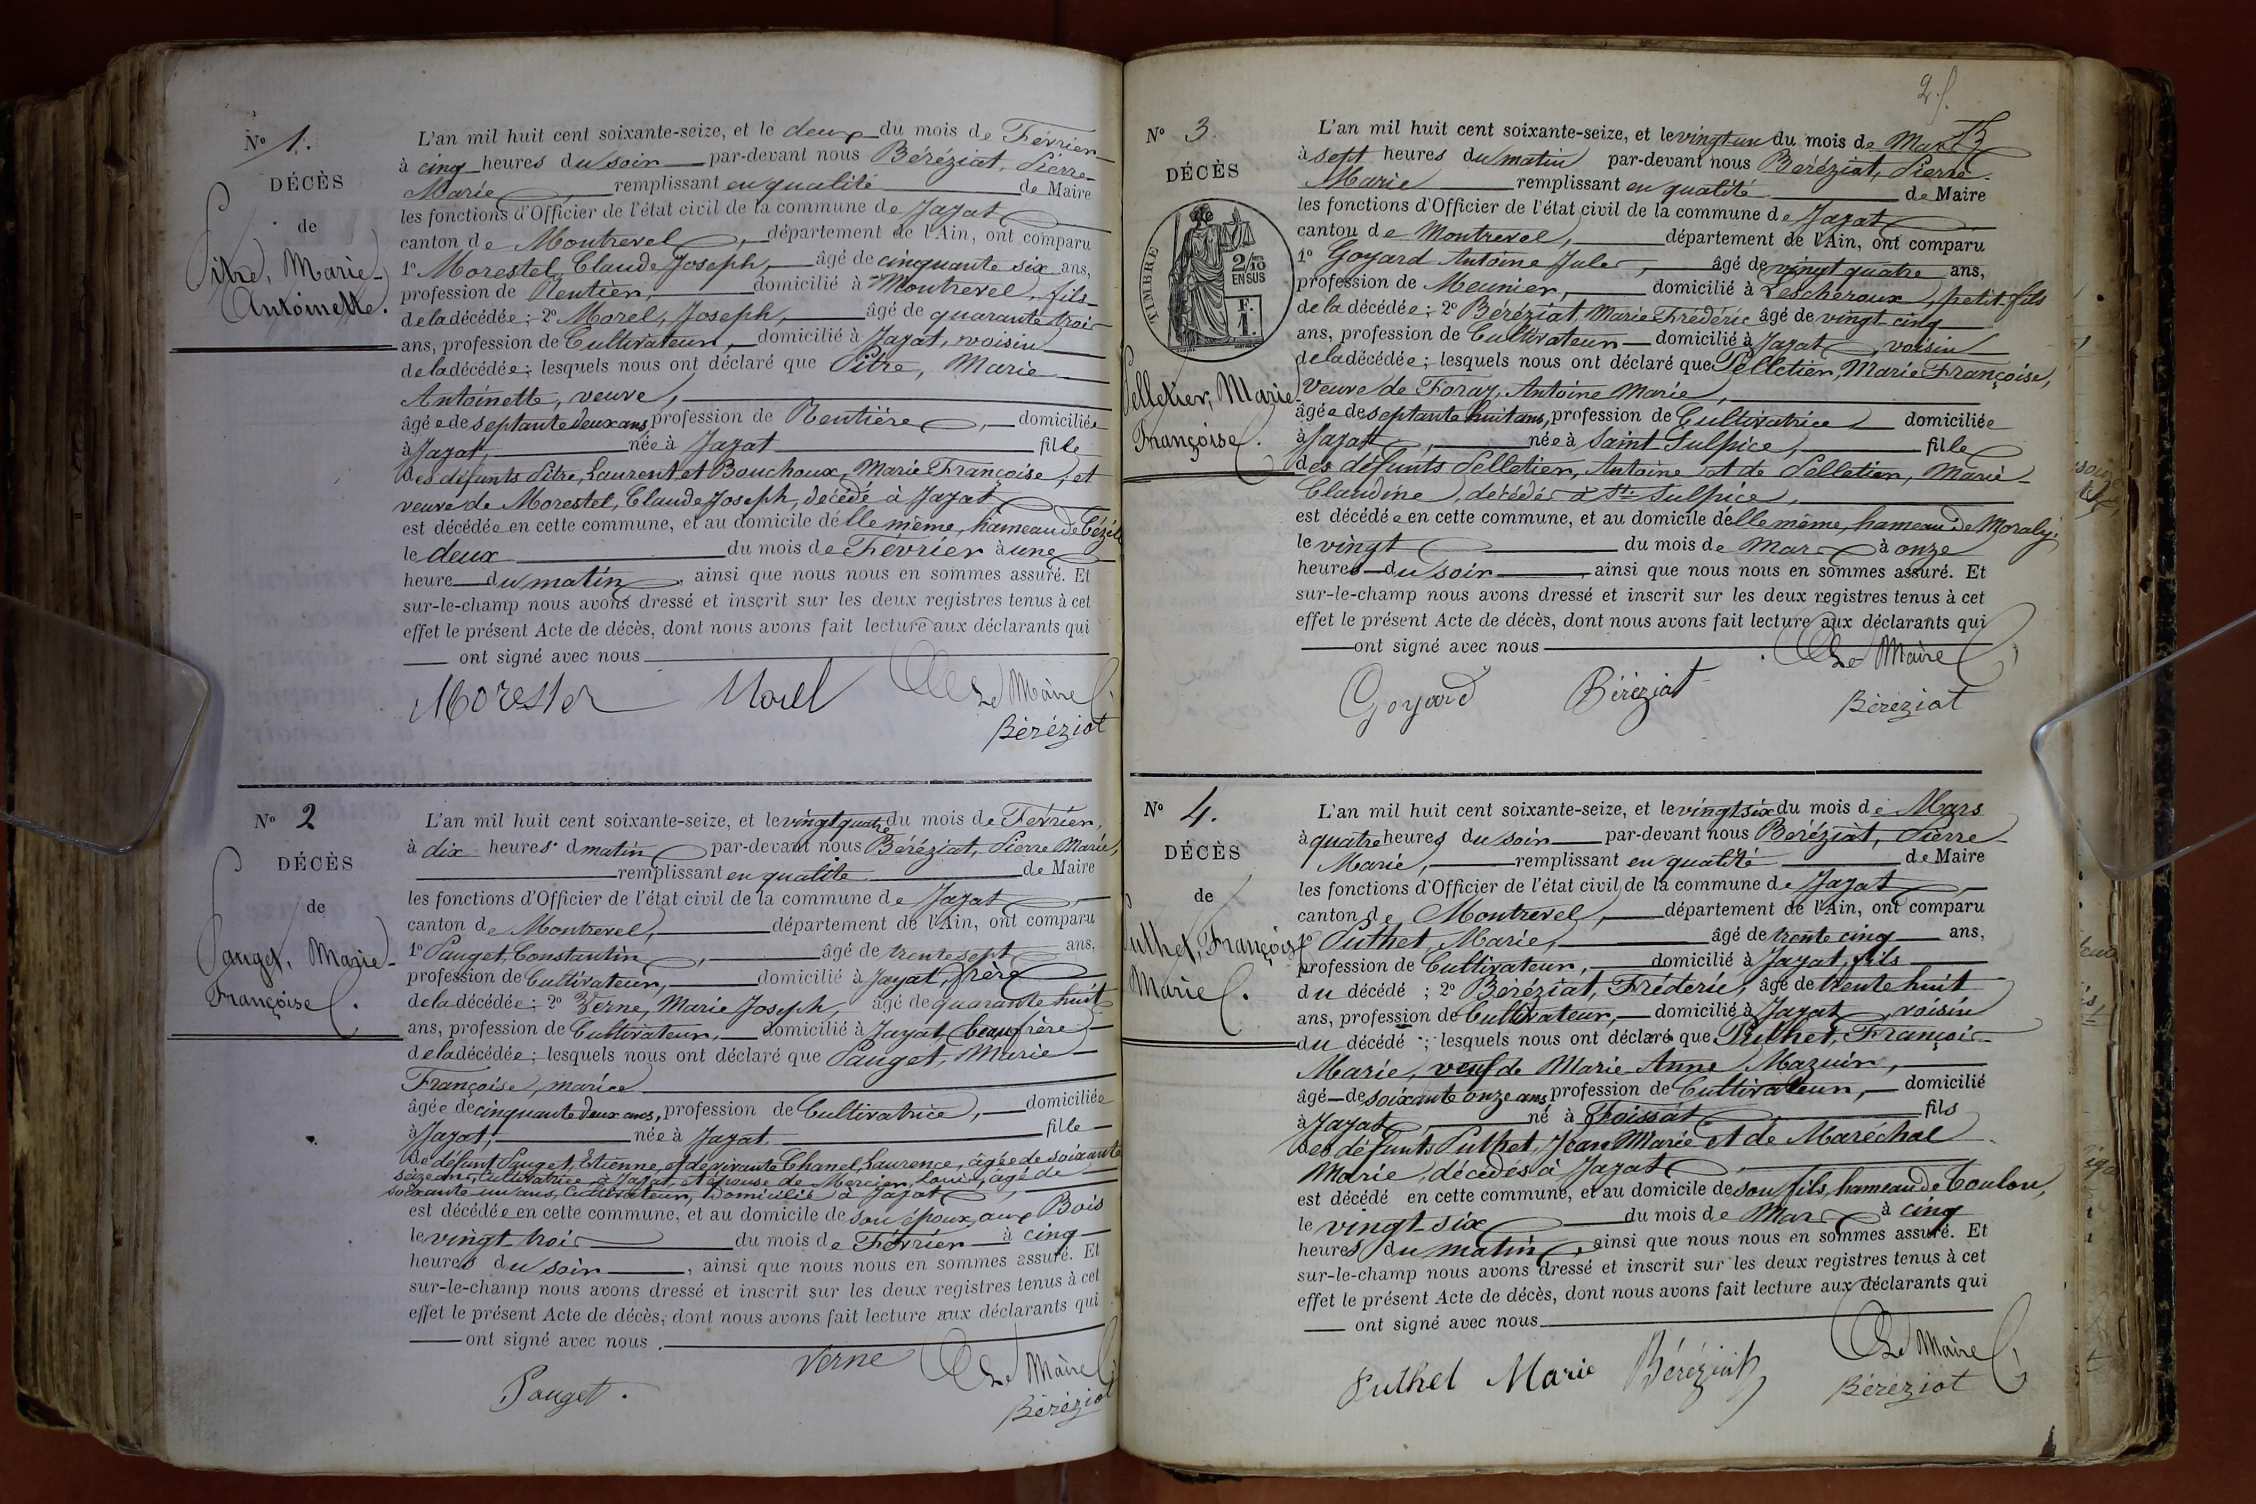 Nº 1.
DÉCÈS
de
Pitre, Marie-
Antoinette.
L'an mil huit cent soixante-seize, et le deux du mois de Février
à cinq heures du soir par-devant nous Béréziat, Pierre-
Marie remplissant en qualité de Maire
les fonctions d'Officier de l'état civil de la commune de Jayat
canton de Montrevel, département de l'Ain, ont comparu
1º Morestel, Claude Joseph, âgé de cinquante six ans,
profession de Rentier, domicilié à Montrevel, fils
de la décédée; 2º Morel, Joseph, âgé de quarante trois
ans, profession de Cultivateur, domicilié à Jayat, voisin
de la décédée; lesquels nous ont déclaré que Pitre, Marie
Antoinette, veuve,
âgée de septante deux ans, profession de Rentière, domiciliée
à Jayat, née à Jayat fille
des défunts Pitre, Laurent et Bouchoux, Marie Françoise, et
veuve de Morestel, Claude Joseph, décédé à Jayat
est décédée en cette commune, et au domicile d'élle même, hameau de
le deux du mois de Février à une
heure du matin, ainsi que nous nous en sommes assuré. Et
sur-le-champ nous avons dressé et inscrit sur les deux registres tenus à cet
effet le présent Acte de décès, dont nous avons fait lecture aux déclarants qui
ont signé avec nous
Morestel Morel Le Maire
Béréziat
Nº 2
DÉCÈS
de
Pauget, Marie-
Françoise.
L'an mil huit cent soixante-seize, et le vingt quatre du mois de Février,
à dix heures d matin par-devant nous Béréziat, Pierre Marie,
remplissant en qualité de Maire
les fonctions d'Officier de l'état civil de la commune de Jayat
canton de Montrevel, département de l'Ain, ont comparu
1º Pauget, Constantin, âgé de trente sept ans,
profession de Cultivateur, domicilié à Jayat, frère
de la décédée; 2º Verne, Marie Joseph, âgé de quarante huit
ans, profession de Cultivateur, domicilié à Jayat, beau frère
de la décédée; lesquels nous ont déclaré que Pauget, Marie
Françoise, mariée
âgée de cinquante deux ans, profession de Cultivatrice, domiciliée
à Jayat, née à Jayat fille
de défunt Pauget, Etienne, et de vivante Chanel, Laurence, âgée de soixante
seize ans, Cultivatrice à Jayat, et épouse de Mercier, Louis, âgé de
soixante un ans, Cultivateur, domicilié à Jayat,
est décédée en cette commune, et au domicile de son époux, aux Bois
le vingt trois du mois de Février à cinq
heures du soir, ainsi que nous nous en sommes assuré. Et
sur-le-champ nous avons dressé et inscrit sur les deux registres tenus à cet
effet le présent Acte de décès, dont nous avons fait lecture aux déclarants qui
ont signé avec nous.
Pauget. Verne Le Maire
Béréziat
Nº 3.
DÉCÈS
TIMBRE
2/10
EN SUS
F.
1.
Pelletier, Marie-
Françoise.
L'an mil huit cent soixante-seize, et le vingt un du mois de Mars
à sept heures du matin par-devant nous Béréziat, Pierre-
Marie remplissant en qualité de Maire
les fonctions d'Officier de l'état civil de la commune de Jayat
canton de Montrevel, département de l'Ain, ont comparu
1º Goyard Antoine Jules, âgé de vingt quatre ans,
profession de Meunier, domicilié à Lescheroux, petit-fils
de la décédée; 2º Béréziat, Marie Frédéric âgé de vingt-cinq
ans, profession de Cultivateur domicilié à Jayat, voisin
de la décédée; lesquels nous ont déclaré que Pelletier, Marie Françoise,
Veuve de Foray, Antoine Marie,
âgée de septante huit ans, profession de Cultivatrice domiciliée
à Jayat, née à Saint Sulpice, fille
des défunts Pelletier, Antoine et de Pelletier, Marie-
Claudine, décédés à St Sulpice,
est décédée en cette commune, et au domicile d'élle même, hameau de Moraly.
le vingt du mois de Mars à onze
heures du soir, ainsi que nous nous en sommes assuré. Et
sur-le-champ nous avons dressé et inscrit sur les deux registres tenus à cet
effet le présent Acte de décès, dont nous avons fait lecture aux déclarants qui
ont signé avec nous
Goyard Béréziat Le Maire
Béréziat
Nº 4.
DÉCÈS
de
Puthet, François
Marie.
L'an mil huit cent soixante-seize, et le vingt six du mois de Mars
à quatre heures du soir par-devant nous Béréziat, Pierre
Marie, remplissant en qualité de Maire
les fonctions d'Officier de l'état civil de la commune de Jayat
canton de Montrevel, département de l'Ain, ont comparu
1º Puthet, Marie, âgé de trente cinq ans,
profession de Cultivateur, domicilié à Jayat, fils
du décédé; 2º Béréziat, Fréderic, âgé de trente huit
ans, profession de Cultivateur, domicilié à Jayat, voisin
du décédé; lesquels nous ont déclaré que Puthet, François-
Marie, veuf de Marie-Anne Mazuir,
âgé de soixante onze ans, profession de Cultivateur, domicilié
à Jayat né à Foissiat fils
des défunts Puthet, Jean Marie et de Maréchal
Marie, décédés à Jayat
est décédé en cette commune, et au domicile de son fils, hameau de Toulon,
le vingt-six du mois de Mars à cinq
heures du matin, ainsi que nous nous en sommes assuré. Et
sur-le-champ nous avons dressé et inscrit sur les deux registres tenus à cet
effet le présent Acte de décès, dont nous avons fait lecture aux déclarants qui
ont signé avec nous
Puthet Marie Béréziat Le Maire
Béréziat